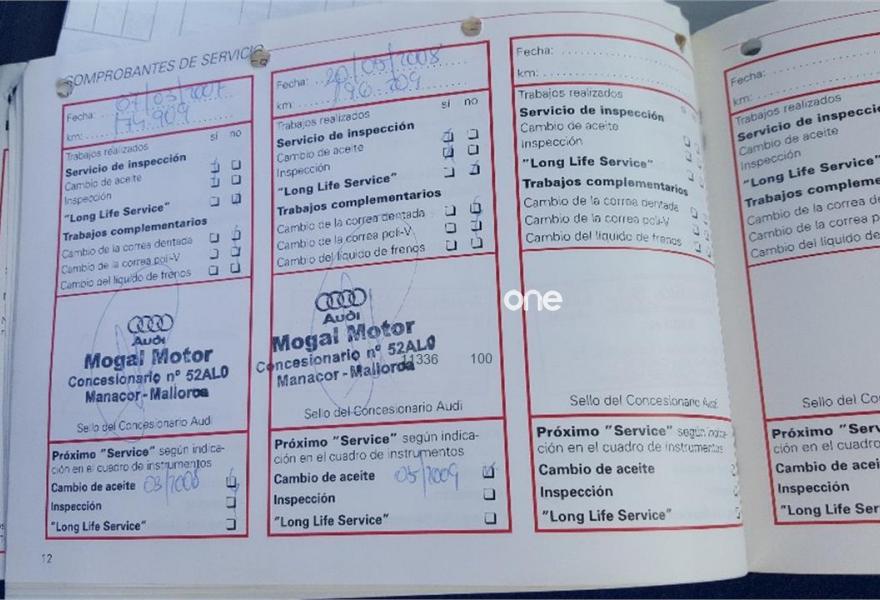 COMPROBANTES DE SERVICIO
Fecha: 07/03/2007
km: 174.909
Trabajos realizados sí no
Servicio de inspección
Cambio de aceite
Inspección
"Long Life Service"
Trabajos complementarios
Cambio de la correa dentada
Cambio de la correa poli-V
Cambio del líquido de frenos
Audi
Mogal Motor
Concesionario nº 52AL0
Manacor - Mallorca
Sello del Concesionario Audi
Próximo "Service" según indica-
ción en el cuadro de instrumentos
Cambio de aceite 03/2008
Inspección
"Long Life Service"
12
Fecha: 20/05/2008
km: 196.209
Trabajos realizados sí no
Servicio de inspección
Cambio de aceite
Inspección
"Long Life Service"
Trabajos complementarios
Cambio de la correa dentada
Cambio de la correa poli-V
Cambio del líquido de frenos
Audi
Mogal Motor
Concesionario nº 52AL0
11336 100
Manacor - Mallorca
Sello del Concesionario Audi
Próximo "Service" según indica-
ción en el cuadro de instrumentos
Cambio de aceite 05/2009
Inspección
"Long Life Service"
Fecha:
km:
Trabajos realizados
Servicio de inspección
Cambio de aceite
Inspección
"Long Life Service"
Trabajos complementarios
Cambio de la correa dentada
Cambio de la correa poli-V
Cambio del líquido de frenos
one
Sello del Concesionario Audi
Próximo "Service" según indica-
ción en el cuadro de instrumentos
Cambio de aceite
Inspección
"Long Life Service"
Fecha:
km:
Trabajos realizados
Servicio de inspección
Cambio de aceite
Inspección
"Long Life Service"
Trabajos compleme
Cambio de la correa de
Cambio de la correa p
Cambio del líquido de
Sello del Co
Próximo "Serv
ción en el cuadro
Cambio de acei
Inspección
"Long Life Ser